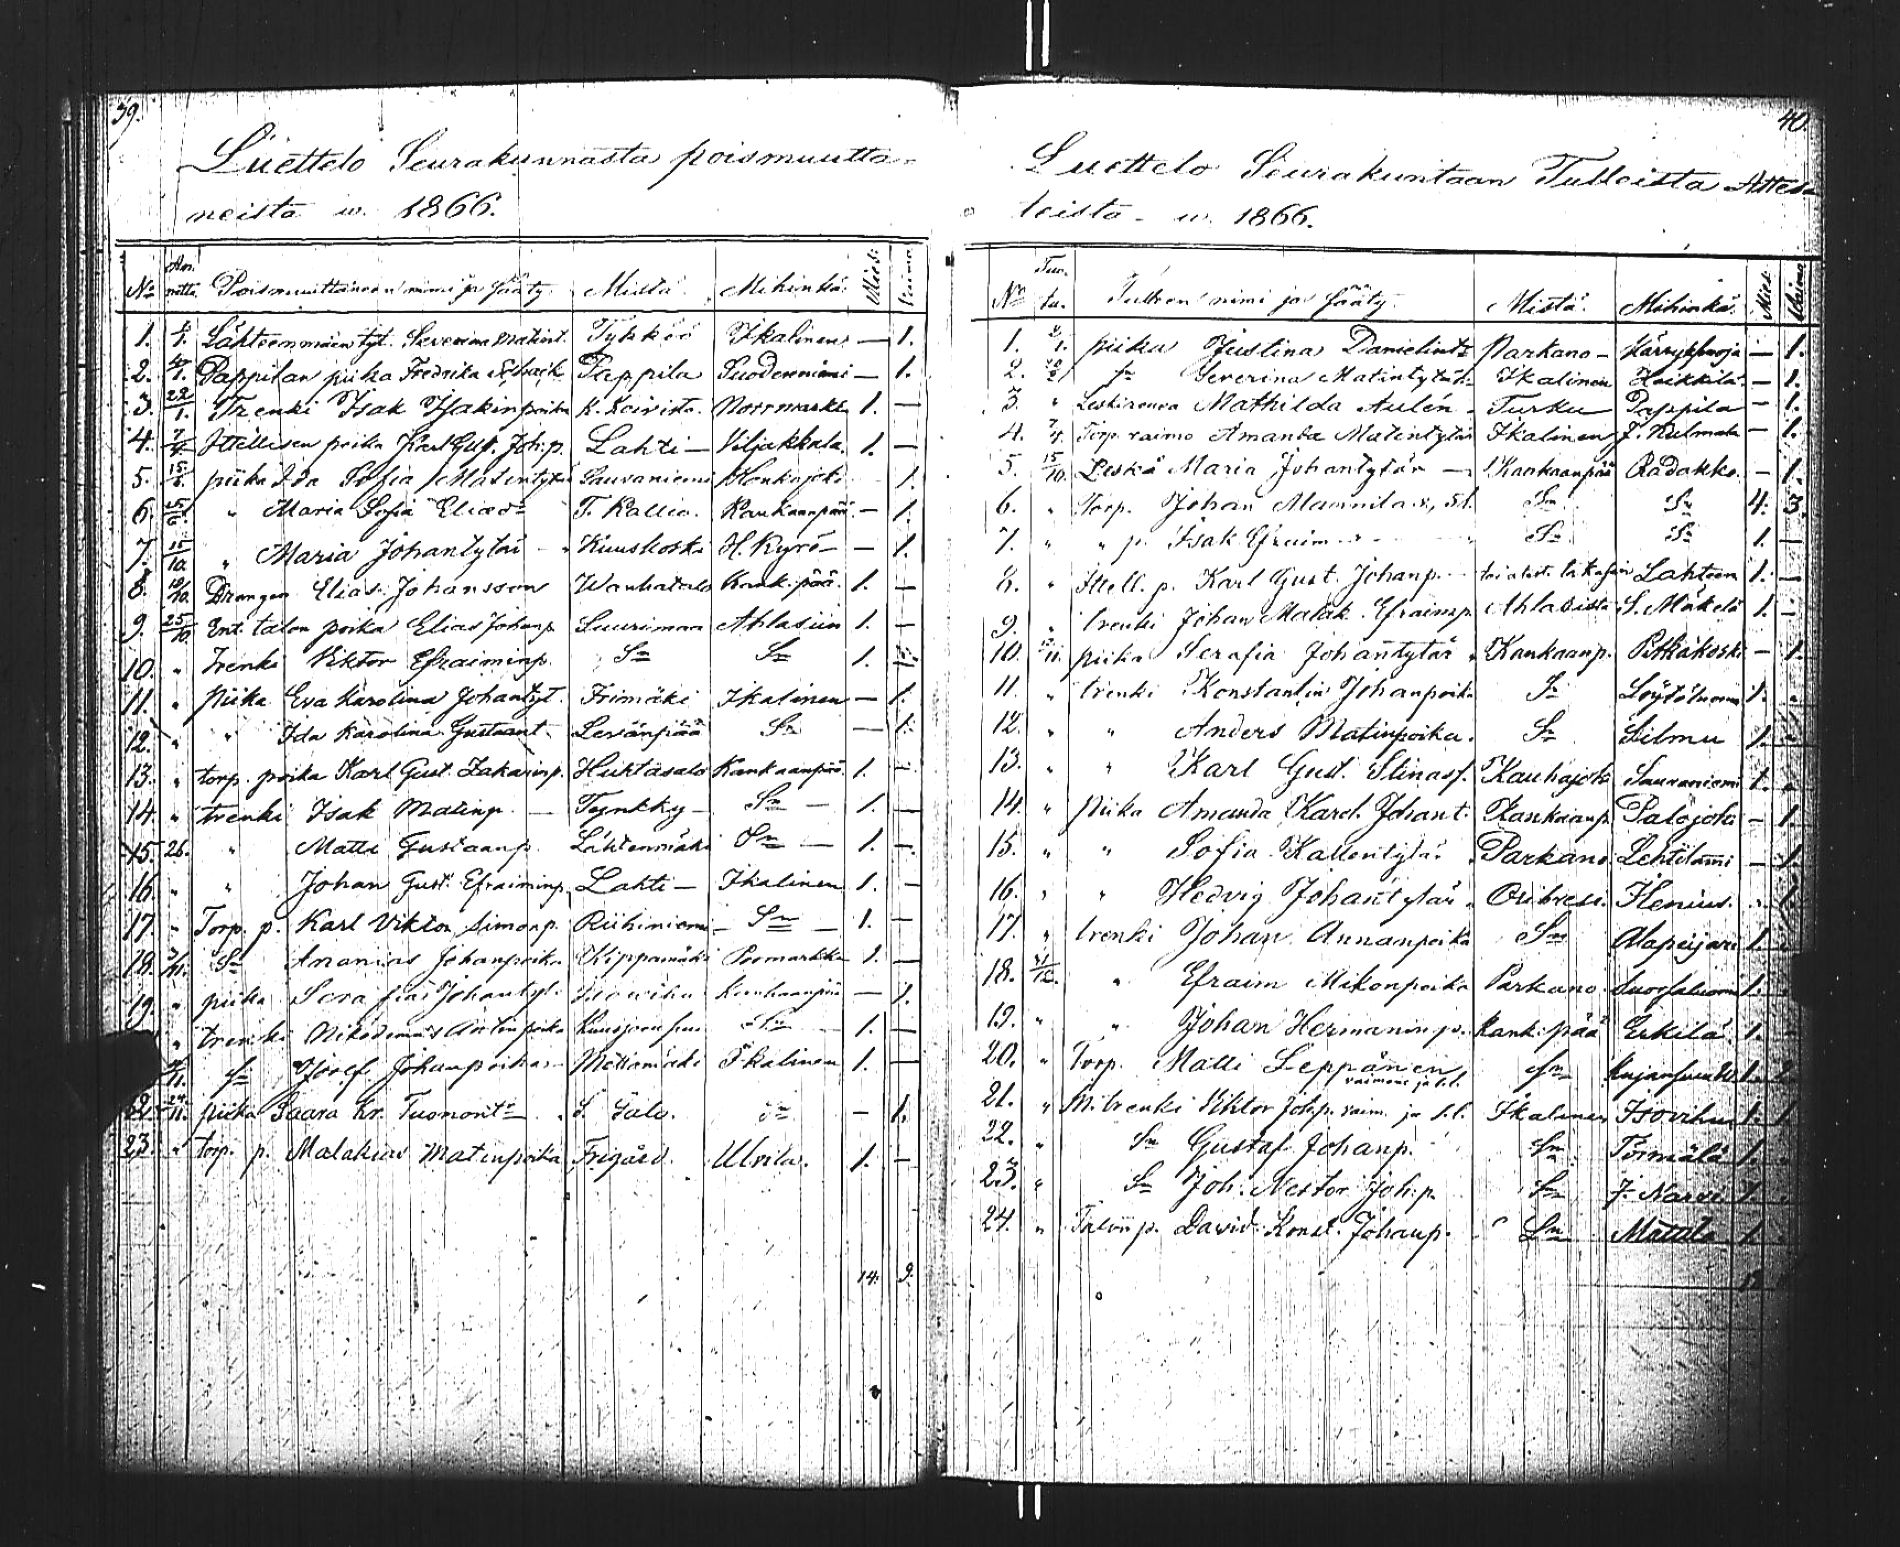 39.
Luettelo Seurakunnasta poismuutta-
neista w. 1866.
No Poismuuttaneen nimi ja Sääty. Mistä. Mihinkä. Miesi Vaimo
1. Lähteenmäen tyt. Severina Matint. Tykköö Ikalinen — 1.
2. Pappilan piika Fredrika Pappila Suodenniemi — 1.
3. 22/1. Trenki Isak Isakinpoika K. Koivisto Norrmarkk 1. —
4. Itellisen poika Karl Gust. Joh.p. Lahti — Viljakkala. 1. —
5. piika Ida Sofia Matintytär Sauvaniemi Honkajoki 1.
6. " Maria Sofia Eliasd:r T. Kallio. Kankaanpää — 1.
7. 15/10. " Maria Johantytär — Kuuskoski H. Kyrö — — 1.
8. 10/10. Drengen Elias Johansson Wanhatalo Kank:pää. 1. —
9. 25/10. Ent. talon poika Elias Johanp. Suurimaa Ahlasiin 1. —
10. " Trenki Viktor Efraiminp. Sn Sn 1. —
11. " Piika Eva Karolina Johantyt. Frimäki Ikalinen — 1.
12. " " Ida Karolina Gustaant. Levänpää Sn — 1.
13. " torp. poika Karl Gust. Zakarinp. Huktasalo Kankaanpää. 1. —
14. " trenki Isak Matinp. — Tynkky — Sn — 1. —
15. 26. " Matti Gustaanp. Lähtenmäki Sn — 1. —
16. " " Johan Gust. Efraiminp. Lahti — Ikalinen 1. —
17. " Torp. p. Karl Viktor Simonp. Riihiniemi — Sn — 1. —
18. Sn Ananias Johanpoika Kippamäki Poomarkku 1. —
19. " piika Serafia Johantyt. Isoviha Kankaanpää — 1.
" trenki Nikodemus Antinpoika Sn 1. —
Sn Josef Johanpoika — Mettämäki Ikalinen 1. —
22. 24/11. piika Saara Kr. Tuomont:r S. Salo. Sn — 1.
23. " torp. p. Malakias Matinpoika Frigård. Ulvila. 1. —
14. 9.
40.
Luettelo Seurakuntaan Tulleista Attes-
teista w. 1866.
No Tuo- tu. Tulleen nimi ja Sääty. Mistä. Mihinkä. Miesi Vaimo
1. 2/1. piika Justina Danielint:r Parkano — — 1.
2. Sn Severina Matintytär Ikalinen Heikkilä. — 1.
3. " Leskirouva Mathilda Aulén — Turku Pappila — 1.
4. Torp. vaimo Amanda Matintytär Ikalinen J. Kulmala — 1.
5. 15/10. Leskä Maria Johantytär — Kankaanpää Radakko. — 1.
6. " Torp. Johan Sn Sn 4. 3.
7. " " p. Isak Efraim Sn Sn 1. —
8. " Itell. p. Karl Gust. Johanp. Lahteen 1. —
9. " trenki Johan Malak. Efraimp. Ahlasista S. Mäkelä 1. —
10. piika Serafia Johantytär " Kankaanp. Pitkäkoski — 1.
11. " trenki Konstantin Johanpoika Sn 1. "
12. " " Anders Matinpoika. Sn Silmu 1. "
13. " " Karl Gust. Stinasp. Kauhajoki Sauvaniemi 1. "
14. " piika Amanda Karol. Johant. Kankaanp. Palojoki — 1.
15. " " Sofia Kallentytär Parkano Lehtilami — 1.
16. " " Hedvig Johantytär " Orihvesi Henius. " 1.
17. " trenki Johan Annanpoika Sn Alapiijari 1. "
18. " Efraim Mikonpoika Parkano 1. "
19. " " Johan Hermaninp. Kank:pää Erkilä. 1. —
20. " Torp. Matti Leppänen Sn 1. 2
vaimone ja t.l.
21. " M. trenki Viktor Joh.p. vaim. ja t.l. Ikalinen Isovihu 1. 1
22. " Sn Gustaf Johanp. Sn Törmälä 1. "
23. " Sn Joh. Nestor Joh.p. Sn J. Narvi 1. "
24. " Talon p. David Konst. Johanp. " Sn Mattila 1. "